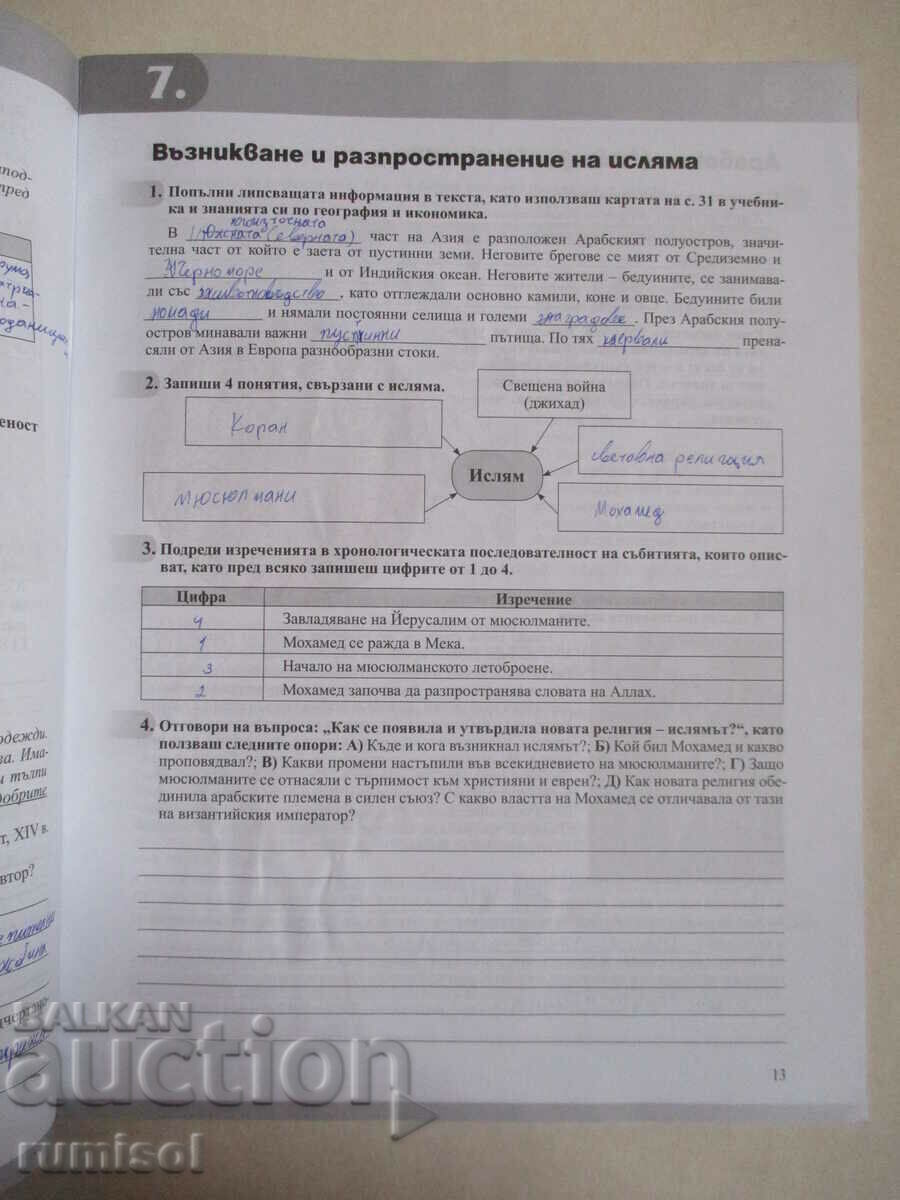 тод-
пред
7.
Възникване и разпространение на исляма
1. Попълни липсващата информация в текста, като използваш картата на с. 31 в учебни-
ка и знанията си по география и икономика.
югоизточната
В Южсната (северната) част на Азия е разположен Арабският полуостров, значи-
телна част от който е заета от пустинни земи. Неговите брегове се мият от Средиземно и
Черноморе и от Индийския океан. Неговите жители – бедуините, се занимава-
ли със животновъдство, като отглеждали основно камили, коне и овце. Бедуините били
номади и нямали постоянни селища и големи градове. През Арабския полу-
остров минавали важни пустинни пътища. По тях кервали прена-
сяли от Азия в Европа разнообразни стоки.
2. Запиши 4 понятия, свързани с исляма.
Свещена война
(джихад)
Коран
световна религия
Ислям
мюсюлмани
Мохамед
3. Подреди изреченията в хронологическата последователност на събитията, които опис-
ват, като пред всяко запишеш цифрите от 1 до 4.
Цифра Изречение
4 Завладяване на Йерусалим от мюсюлманите.
1 Мохамед се ражда в Мека.
3 Начало на мюсюлманското летоброене.
2 Мохамед започва да разпространява словата на Аллах.
4. Отговори на въпроса: „Как се появила и утвърдила новата религия – ислямът?“, като
ползваш следните опори: А) Къде и кога възникнал ислямът?; Б) Кой бил Мохамед и какво
проповядвал?; В) Какви промени настъпили във всекидневието на мюсюлманите?; Г) Защо
мюсюлманите се отнасяли с търпимост към християни и евреи?; Д) Как новата религия обе-
динила арабските племена в силен съюз? С какво властта на Мохамед се отличавала от тази
на византийския император?
13
еност
одежди.
ва. Има-
и тълпи
добрите
т, XIV в.
втор?
BALKAN
auction
rumisol